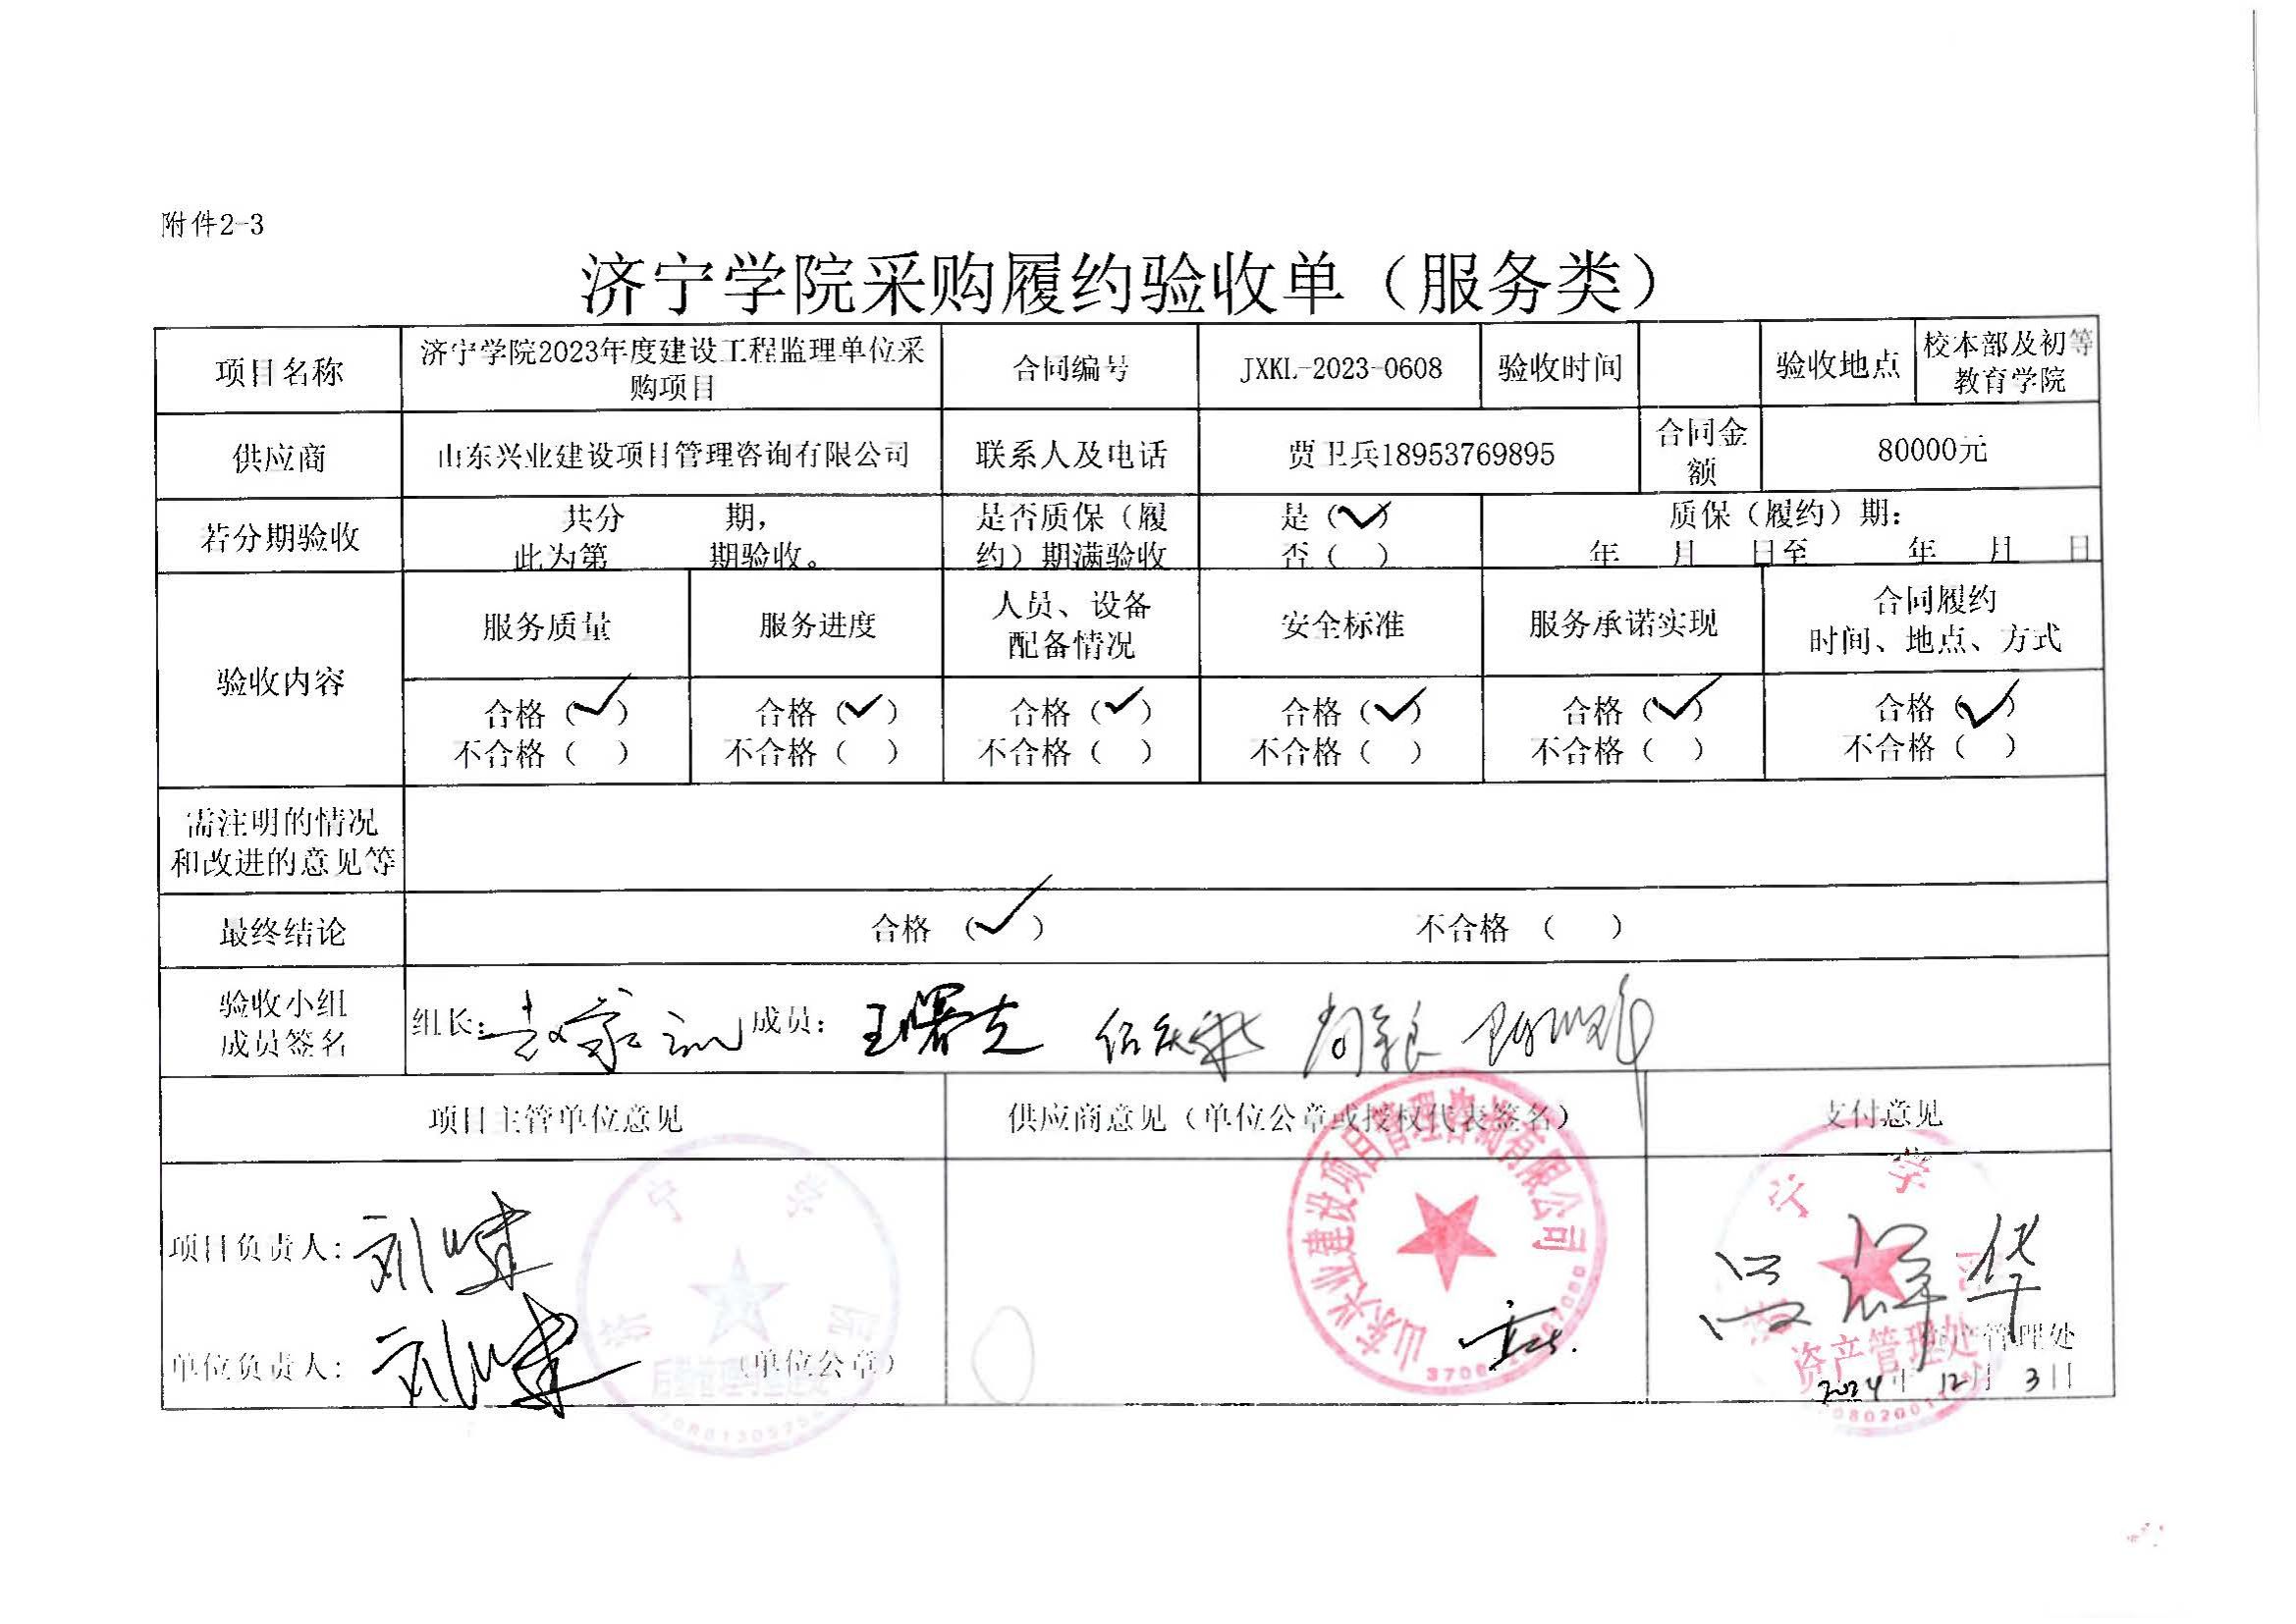 附件2-3
济宁学院采购履约验收单（服务类）
项目名称
济宁学院2023年度建设工程监理单位采
购项目
合同编号
JXKL-2023-0608
验收时间
验收地点
校本部及初等
教育学院
供应商
山东兴业建设项目管理咨询有限公司
联系人及电话
贾卫兵18953769895
合同金
额
80000元
若分期验收
共分 期，
此为第 期验收。
是否质保（履
约）期满验收
是（✓）
否（ ）
质保（履约）期：
年 月 日至 年 月 日
验收内容
服务质量
服务进度
人员、设备
配备情况
安全标准
服务承诺实现
合同履约
时间、地点、方式
合格（✓）
不合格（ ）
合格（✓）
不合格（ ）
合格（✓）
不合格（ ）
合格（✓）
不合格（ ）
合格（✓）
不合格（ ）
合格（✓）
不合格（ ）
需注明的情况
和改进的意见等
最终结论
合格（✓） 不合格（ ）
验收小组
成员签名
组长： 成员：王曙光
项目主管单位意见
供应商意见（单位公章或授权代表签名）
支付意见
项目负责人：
单位负责人：
（单位公章）
济宁学院
山东兴业建设项目管理咨询有限公司
济宁学院
资产管理处
管理处
2024年12月3日